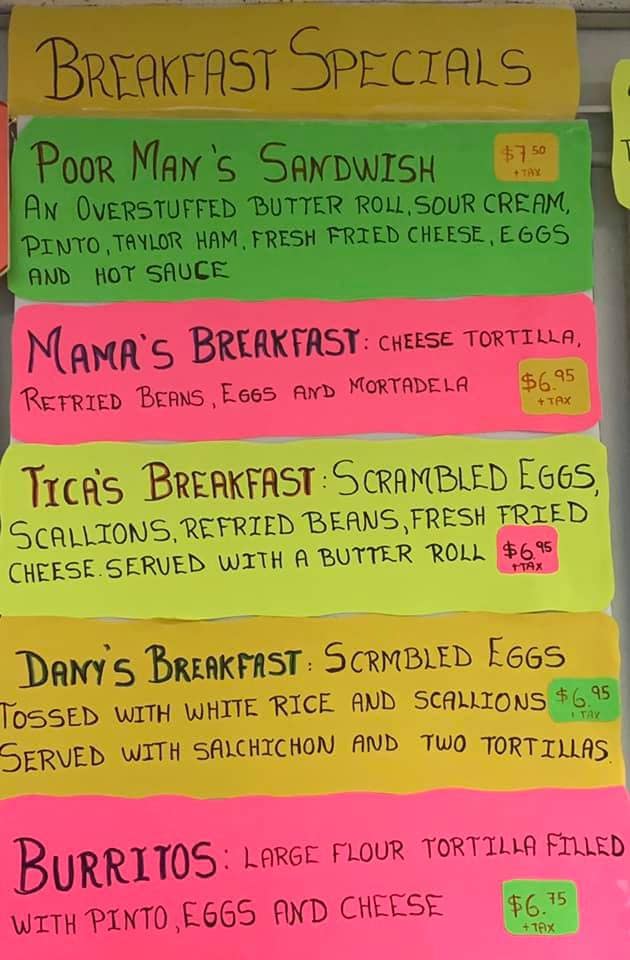 BREAKFAST SPECIALS
POOR MAN'S SANDWISH $7.50 + TAX
AN OVERSTUFFED BUTTER ROLL, SOUR CREAM,
PINTO, TAYLOR HAM, FRESH FRIED CHEESE, EGGS
AND HOT SAUCE
MAMA'S BREAKFAST: CHEESE TORTILLA,
REFRIED BEANS, EGGS AND MORTADELA $6.95 + TAX
TICA'S BREAKFAST: SCRAMBLED EGGS,
SCALLIONS, REFRIED BEANS, FRESH FRIED
CHEESE. SERVED WITH A BUTTER ROLL $6.95 + TAX
DANY'S BREAKFAST: SCRMBLED EGGS
TOSSED WITH WHITE RICE AND SCALLIONS $6.95 + TAX
SERVED WITH SALCHICHON AND TWO TORTILLAS.
BURRITOS: LARGE FLOUR TORTILLA FILLED
WITH PINTO, EGGS AND CHEESE $6.75 + TAX